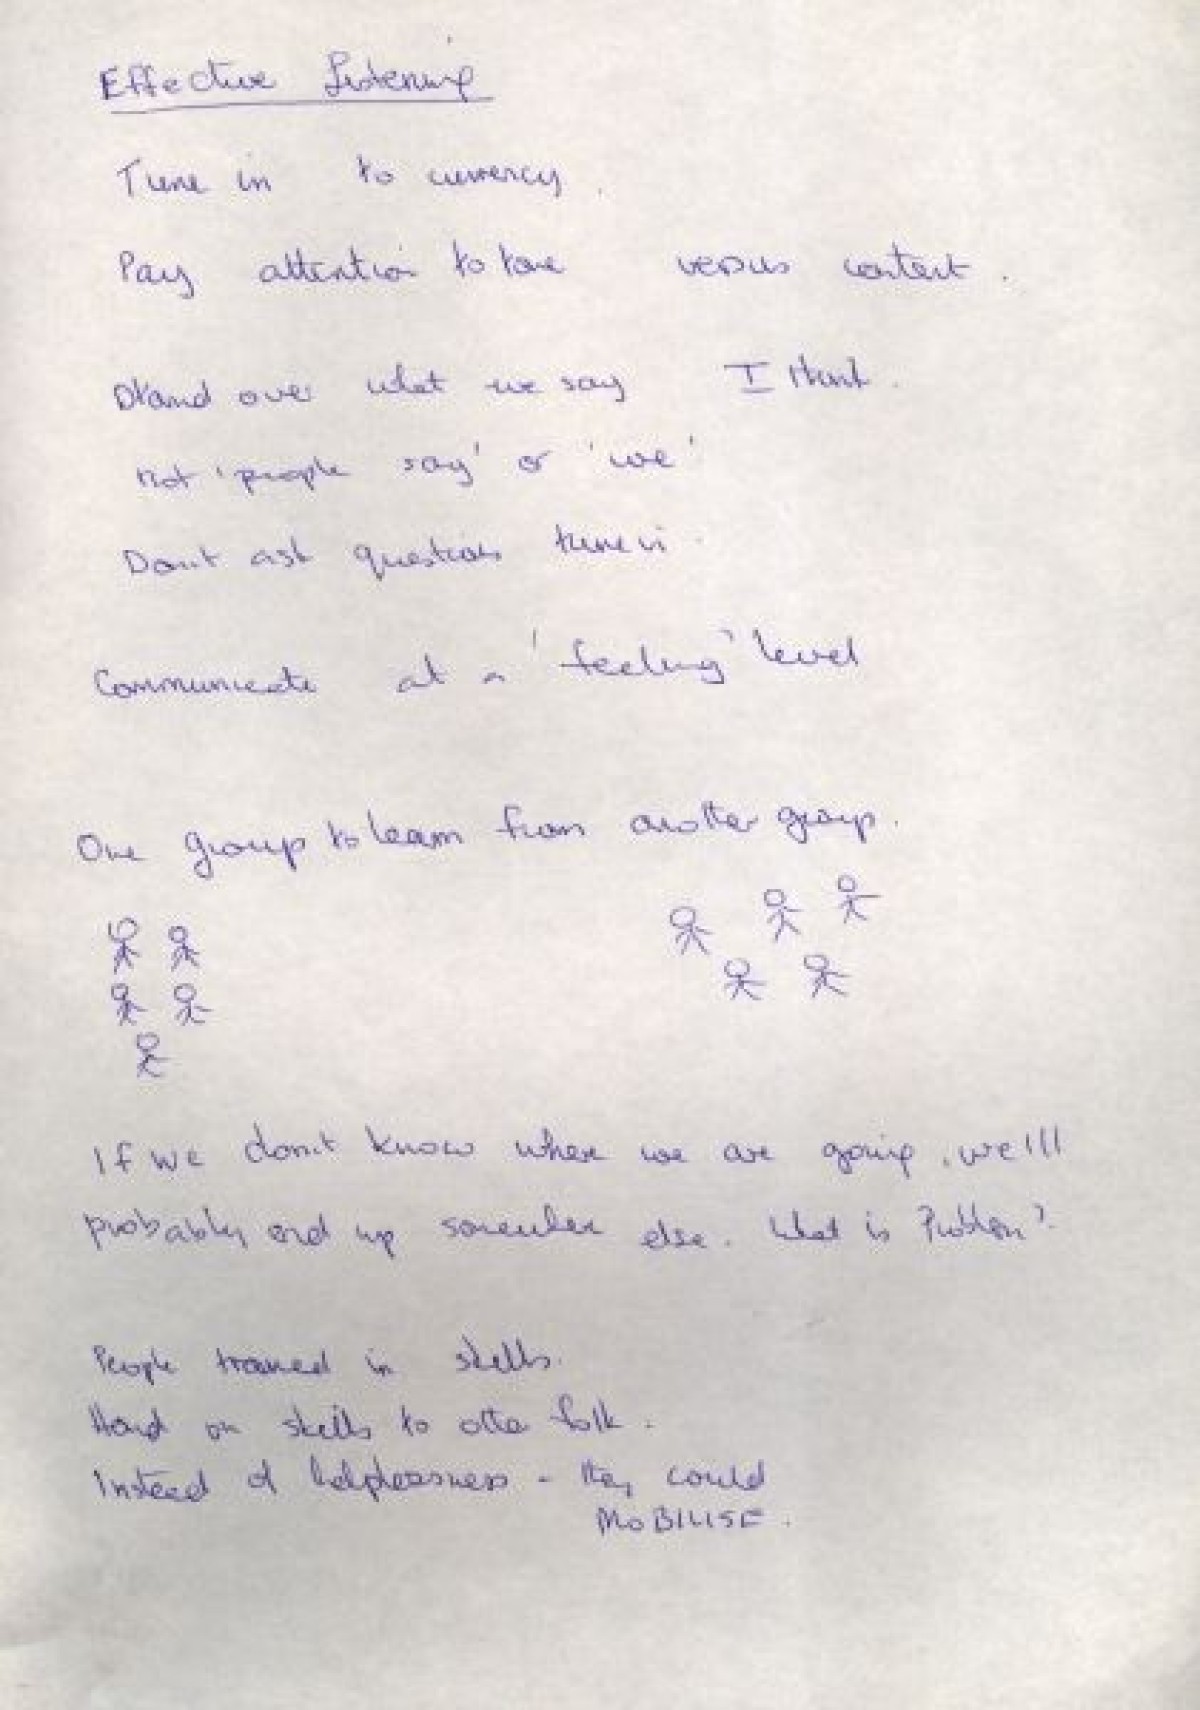 Effective Listening
Tune in to currency.
Pay attention to tone versus content.
Stand over what we say I think.
not 'people say' or 'we'
Dont ask questions tune in.
Communicate at a 'feeling' level
One group to learn from another group.
If we don't know where we are going, we'll
probably end up somewhere else. What is Problem?
People trained in skills.
Hand on skills to other folk.
Instead of helplessness - they could
MOBILISE.